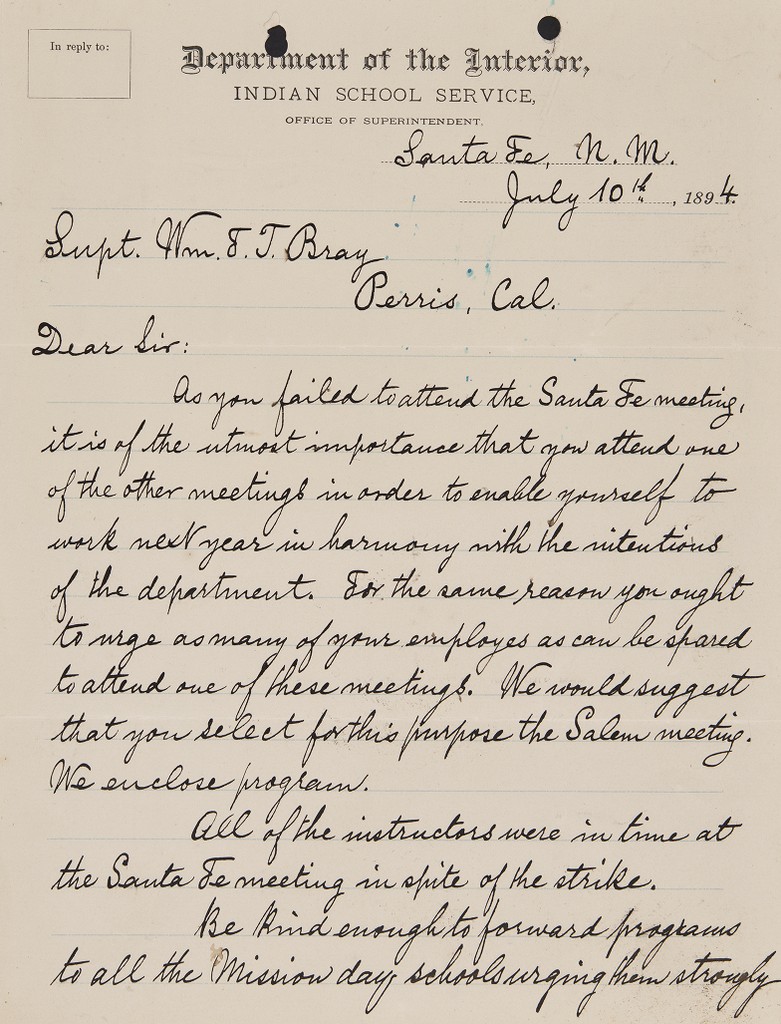 In reply to:
Department of the Interior,
INDIAN SCHOOL SERVICE,
OFFICE OF SUPERINTENDENT.
Santa Fe, N. M.
July 10th, 1894.
Supt. Wm. F. T. Bray
Perris, Cal.
Dear Sir:
As you failed to attend the Santa Fe meeting,
it is of the utmost importance that you attend one
of the other meetings in order to enable yourself to
work next year in harmony with the intentions
of the department. For the same reason you ought
to urge as many of your employes as can be spared
to attend one of these meetings. We would suggest
that you select for this purpose the Salem meeting.
We enclose program.
All of the instructors were in time at
the Santa Fe meeting in spite of the strike.
Be kind enough to forward programs
to all the Mission day schools urging them strongly